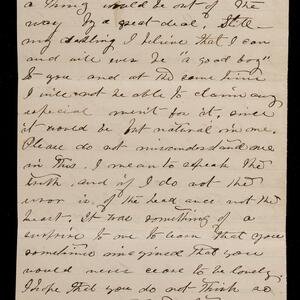 a thing would be out of the
way by a great deal. Still
my darling I believe that I can
and will ever be "a good boy"
to you and at the same time
I will not be able to claim any
especial merit for it, since
it would be but natural in me.
Please do not misunderstand me
in this. I mean to speak the
truth, and if I do not the
error is of the head and not the
heart. It was something of a
surprise to me to learn that you
sometimes imagined that you
would never cease to be lonely.
I hope that you do not think so